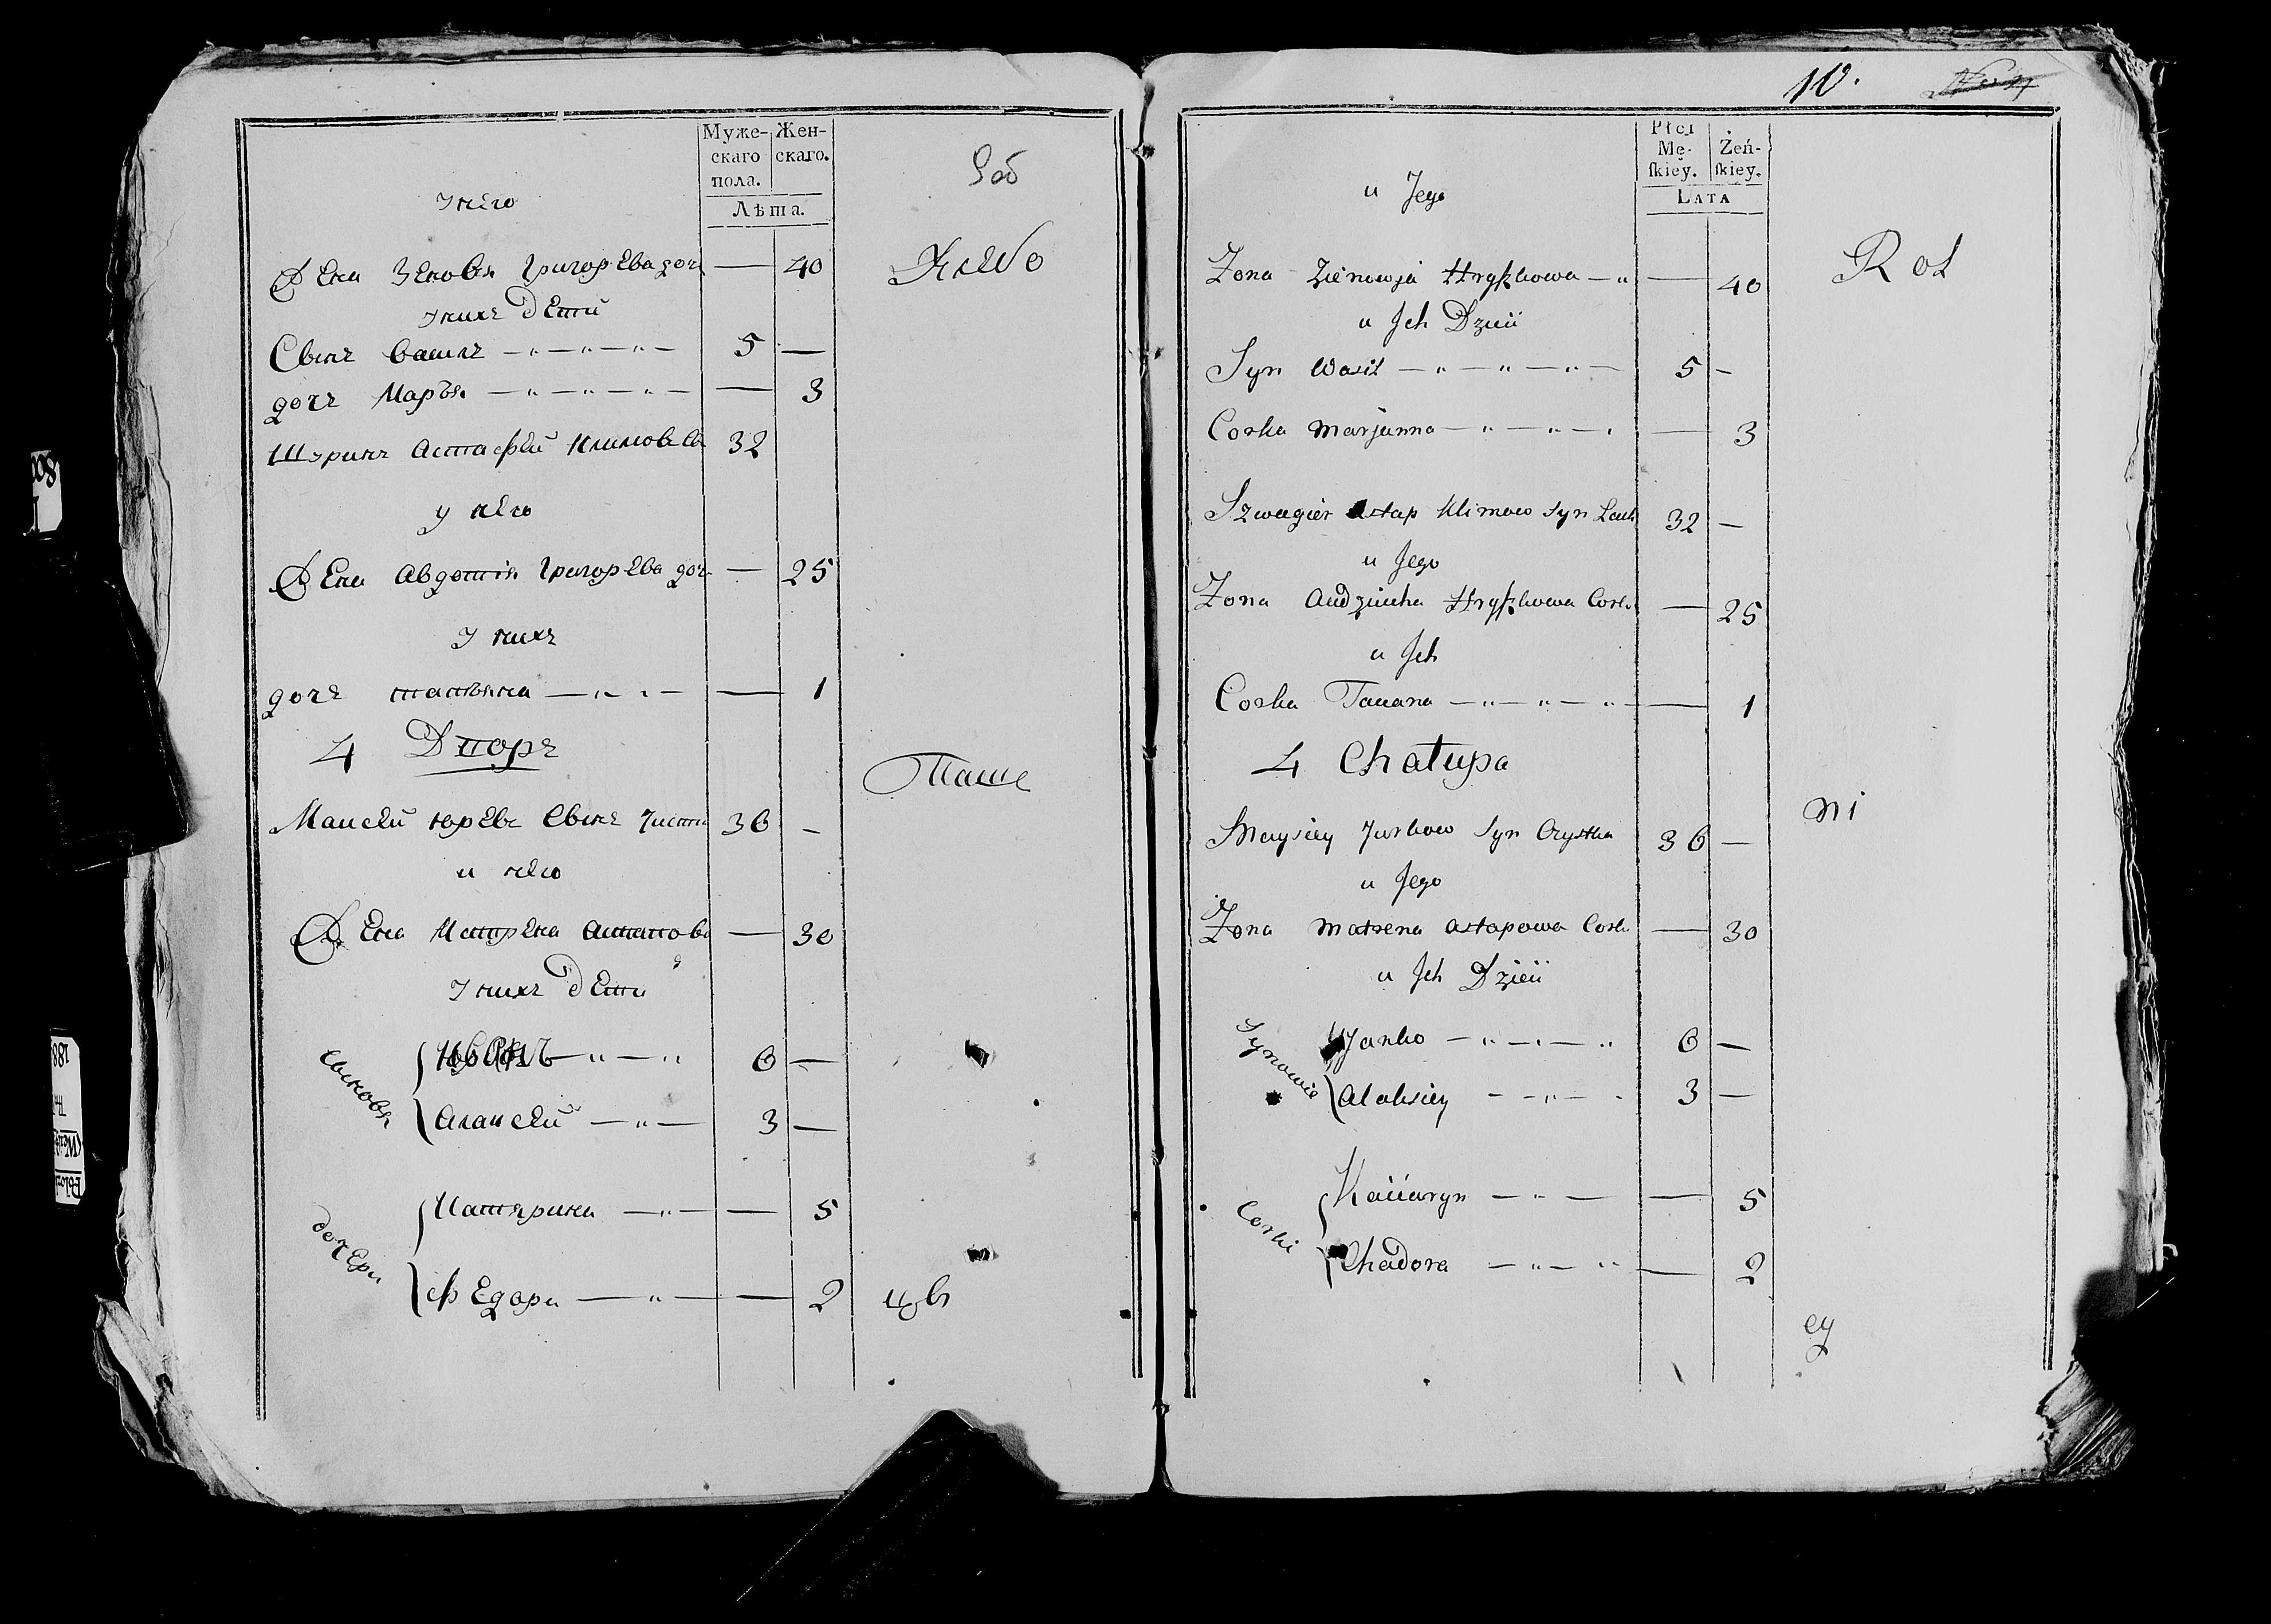 Муже- Жен-
скаго скаго.
пола.
Лѣта.
Хлебо
Жена Зеновья Григорьева доч — 40
у нихъ дети
Сынъ Василъ — " — " — " — 5 —
дочъ Марья — " — " — " — — 3
Шуринъ Астафей Климовъ 32
у него
Жена Авдотья Григорьева доч — 25
у нихъ
дочъ татьяна — " — — 1
4 Дворъ
Паше
Мансей юрьевъ Сынъ 36 —
и него
Жена Матрена Астапова — 30
у нихъ дети
Сыновья
— " — " 6 —
Алаксей — " — 3 —
дочери
Катярина — " — — 5
федора — " — — 2
цовъ
10.
Płci
Mę- Żeń-
skiey. skiey.
LATA
u Jego
Rol
Zona Zienowja Hryszkowa — " — 40
u Jch Dzieci
Syn Wasil — " — " — " — 5 —
Corka Marjanna — " — " — — 3
Szwagier Astap Klimow Syn 32 —
u Jego
Zona Audziucha Hryszkowa Corka — 25
u Jch
Corka Taciana — " — " — " — — 1
4 Chałupa
ni
Maysiey Jurkow Syn Czystka 36 —
u Jego
Zona Matrena Astapowa Corka — 30
u Jch Dzieci
Synowie
Janko — " — " — " 6 —
Alaksiey — " — 3 —
Corki
Kaciaryn — " — — 5
Chadora — " — " — 2
cy